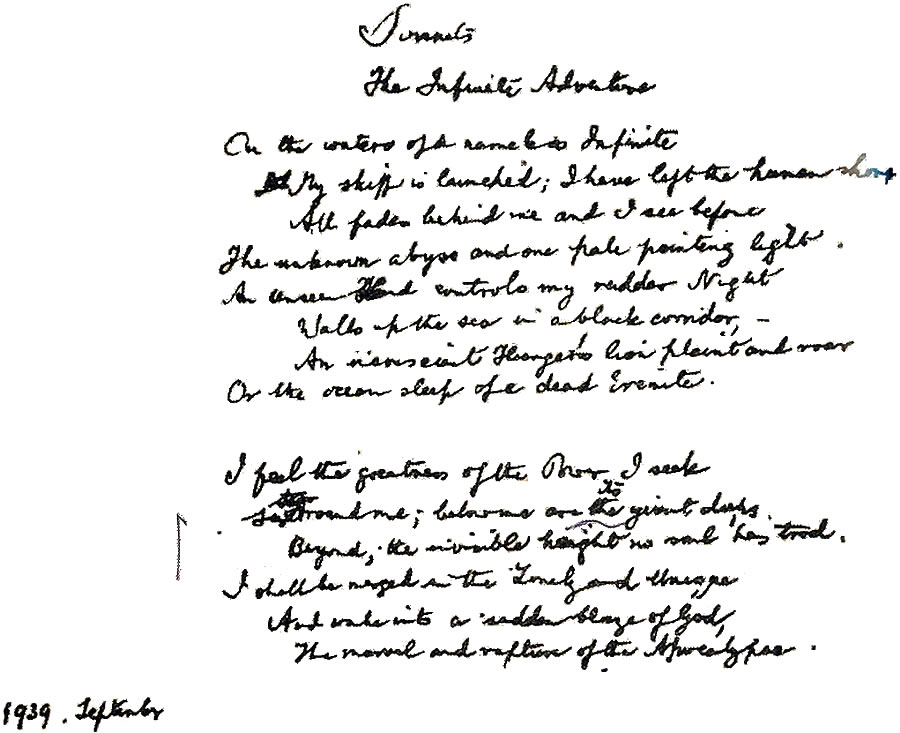 Sonnets
The Infinite Adventure
On the waters of a nameless Infinite
My skiff is launched; I have left the human shore
All fades behind me and I see before
The unknown abyss and one pale pointing light.
An unseen Hand controls my rudder Night
Walls up the sea in a black corridor, –
An inconscient Hunger's lion plaint and roar
Or the ocean sleep of a dead Eremite.
I feel the greatness of the Power I seek
Surround me; below me are its the giant deeps.
Beyond, the invisible height no soul has trod.
I shall be merged in the Lonely and Unique
And wake into a sudden blaze of God,
The marvel and rapture of the Apocalypse.
1939. September